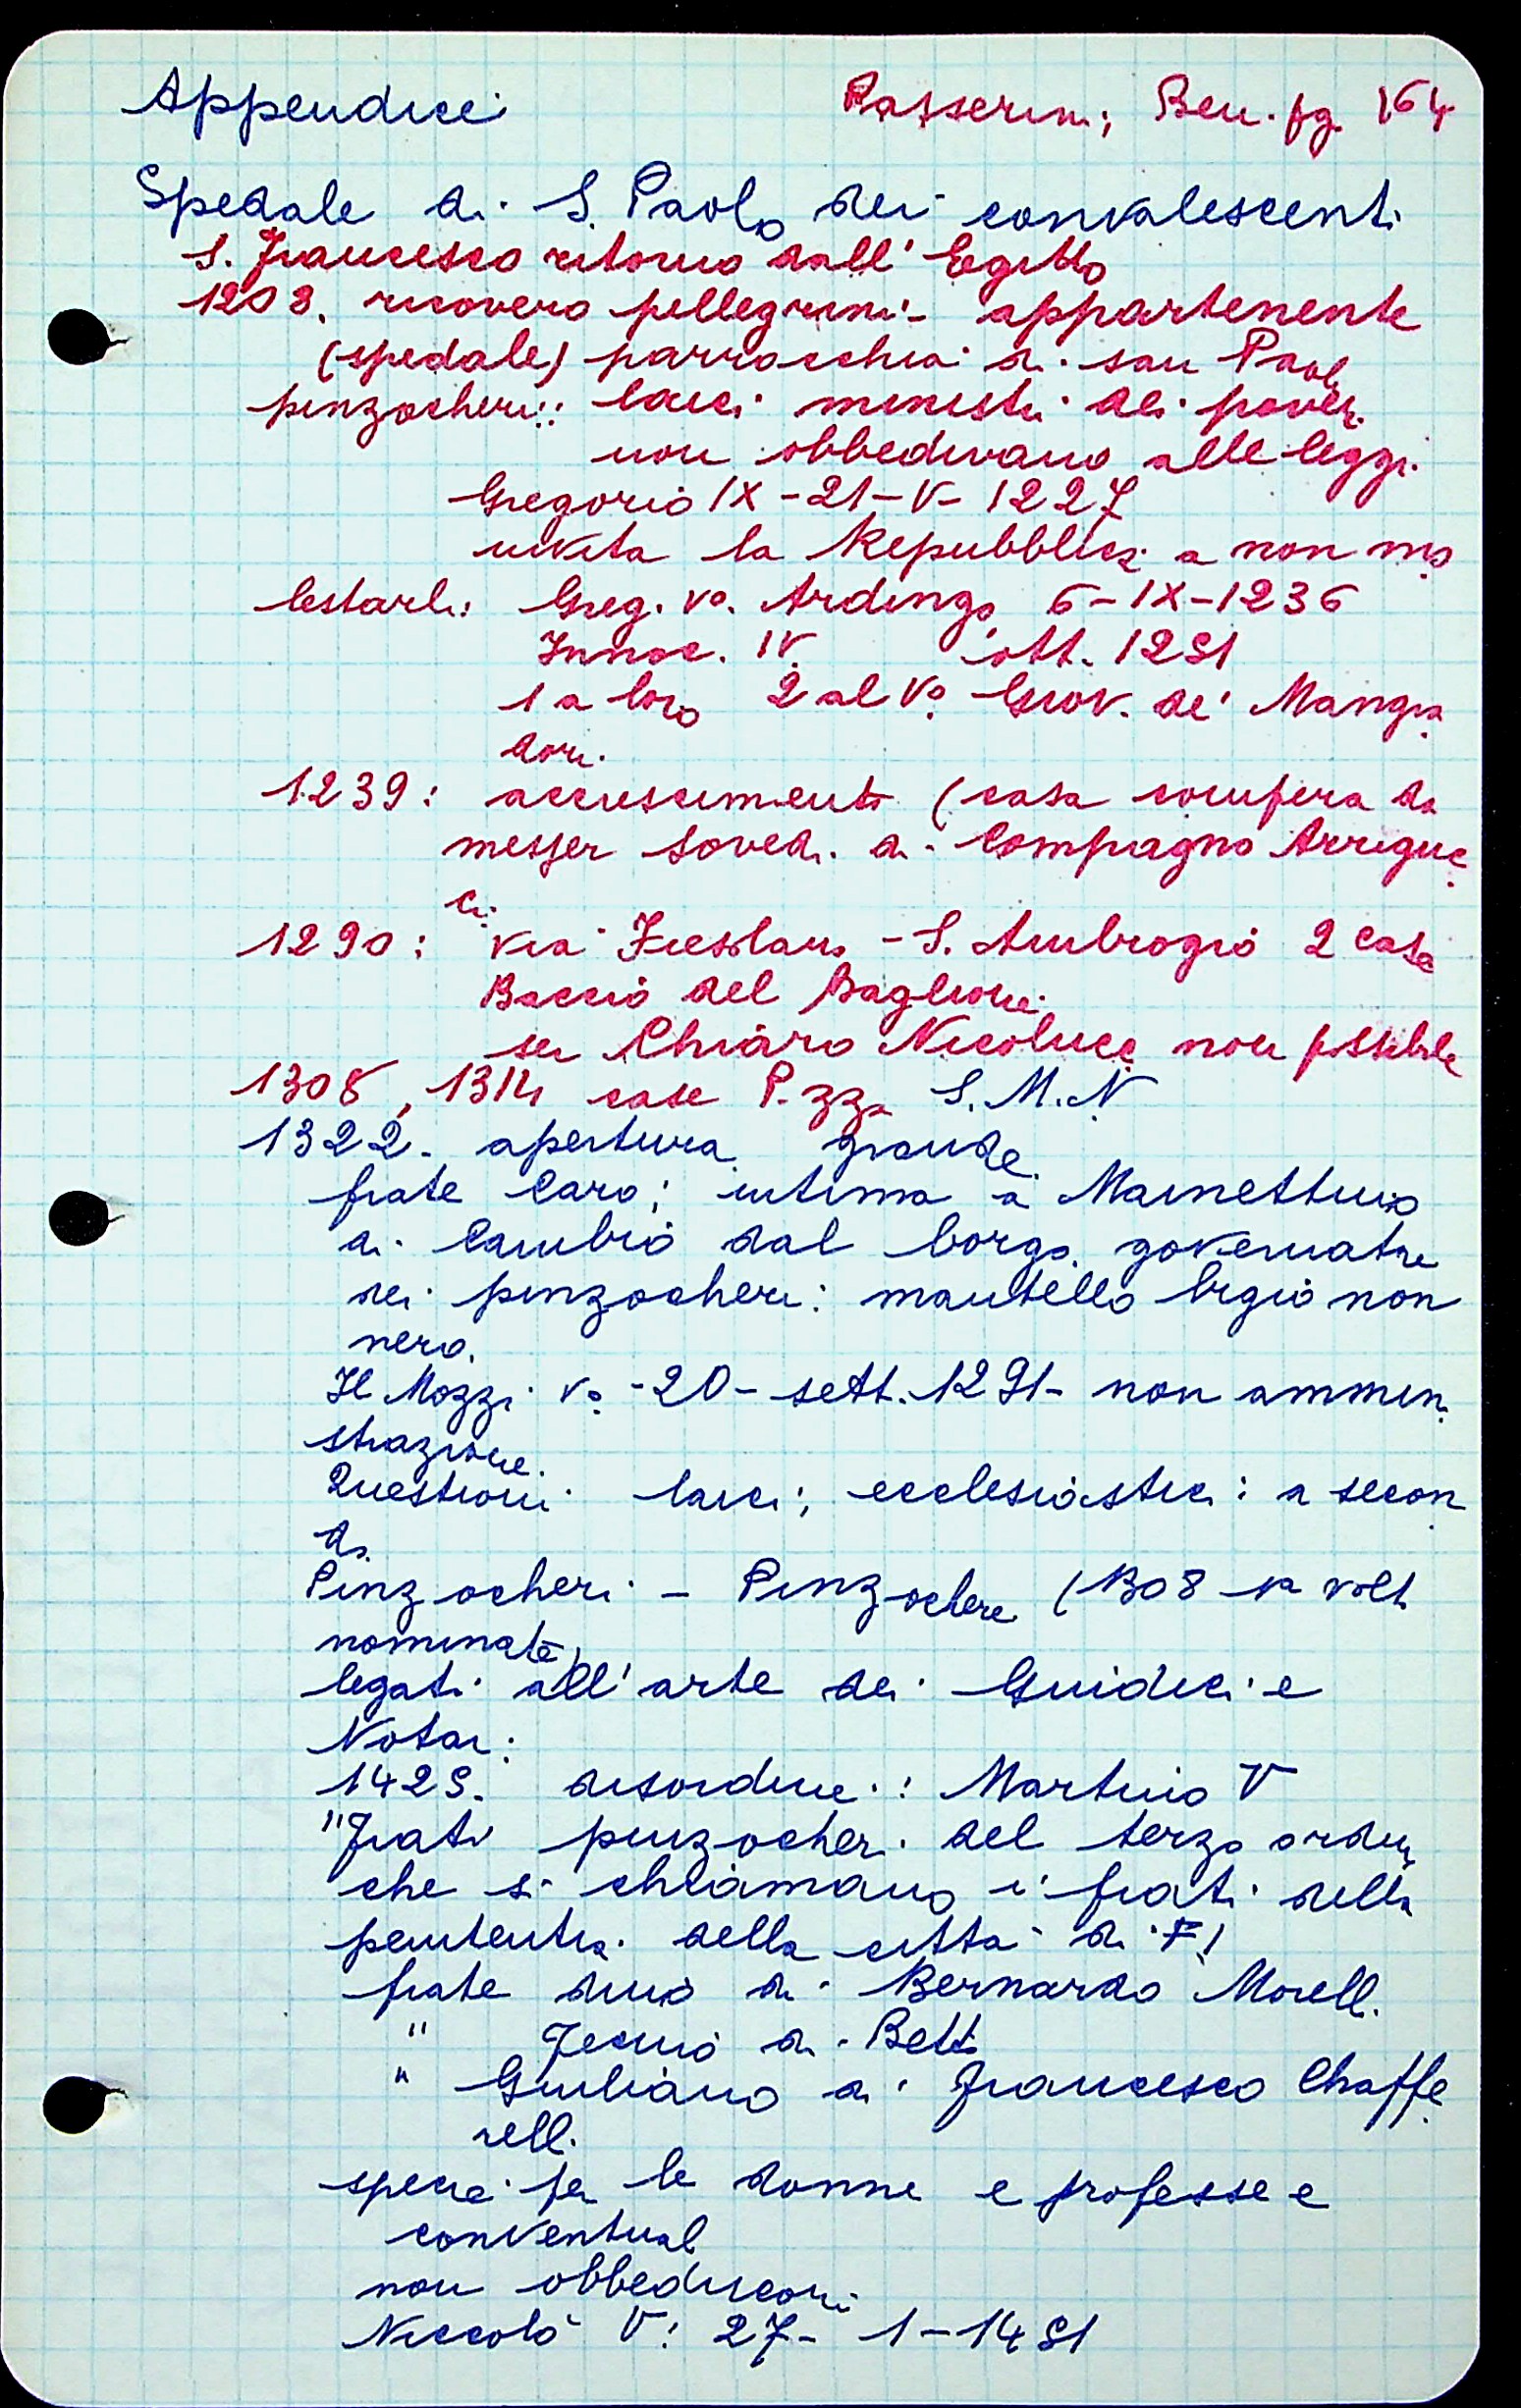 Appendice Passerini, Ben. pg. 164
Spedale di S. Paolo dei convalescenti
S. Francesco ritorno dall' Egitto
1208. ricovero pellegrini - appartenente
(spedale) parrocchia di san Paolo
pinzocheri: laici ministri dei poveri
non obbedivano alle leggi.
Gregorio IX - 21 - V - 1227
invita la Repubblica a non mo
lestarli: Greg. vo. Ardingo 6 - IX - 1236
Innoc. IV ott. 1251
1 a loro 2 al Vo Giov. de' Mangia
dori.
1239: accrescimento (casa compera da
messer Soved. di Compagno Arriguc
ci.
1290: via Fiesolana - S. Ambrogio 2 case
Baccio del Baglione
ser Chiaro Nicolucci non possibile
1308, 1314 case P.zza S.M.N
1322. apertura grande
frate Caro; intima a Mainettino
di Cambio dal borgo governatore
dei pinzocheri: mantello bigio non
nero.
Il Mozzi vo - 20 - sett. 1291 - non ammini
strazione.
Questioni laici; ecclesiastici: a secon
da.
Pinzocheri - Pinzochere (1308 1a volta
nominate)
legati all' arte dei Guidici e
Notai:
1425. disordine: Martino V
"Frati pinzocheri del terzo ordine
che si chiamano i frati della
penitentia della citta di F!
frate dino di Bernardo Morelli
" Fecino di Betto
" Giuliano di Francesco Chaffe
relli.
specie per le donne e professe e
conventuali
non obbediscono
Niccolò V: 27 - 1 - 1451